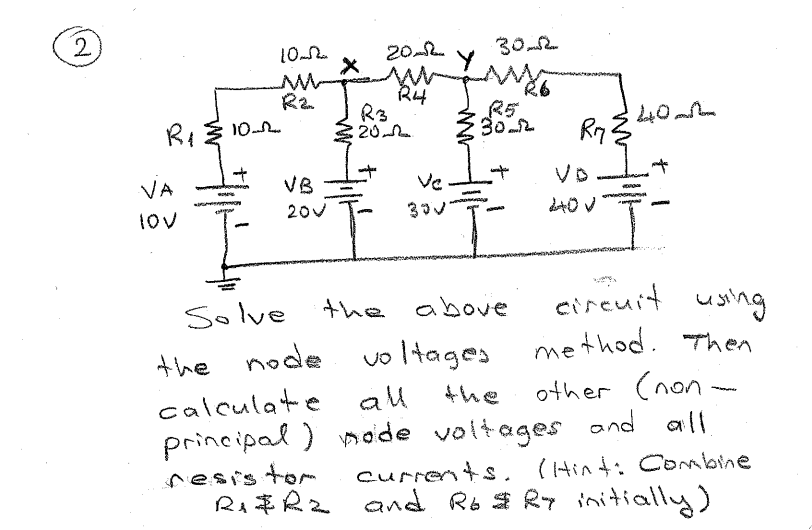 2
10Ω X 20Ω Y 30Ω
R2 R4 R6
R1 10Ω R3 20Ω R5 30Ω R7 40Ω
+ + + +
VA VB VC VD
10V 20V 30V 40V
- - - -
Solve the above circuit using
the node voltages method. Then
calculate all the other (non-
principal) node voltages and all
resistor currents. (Hint: Combine
R1 & R2 and R6 & R7 initially)